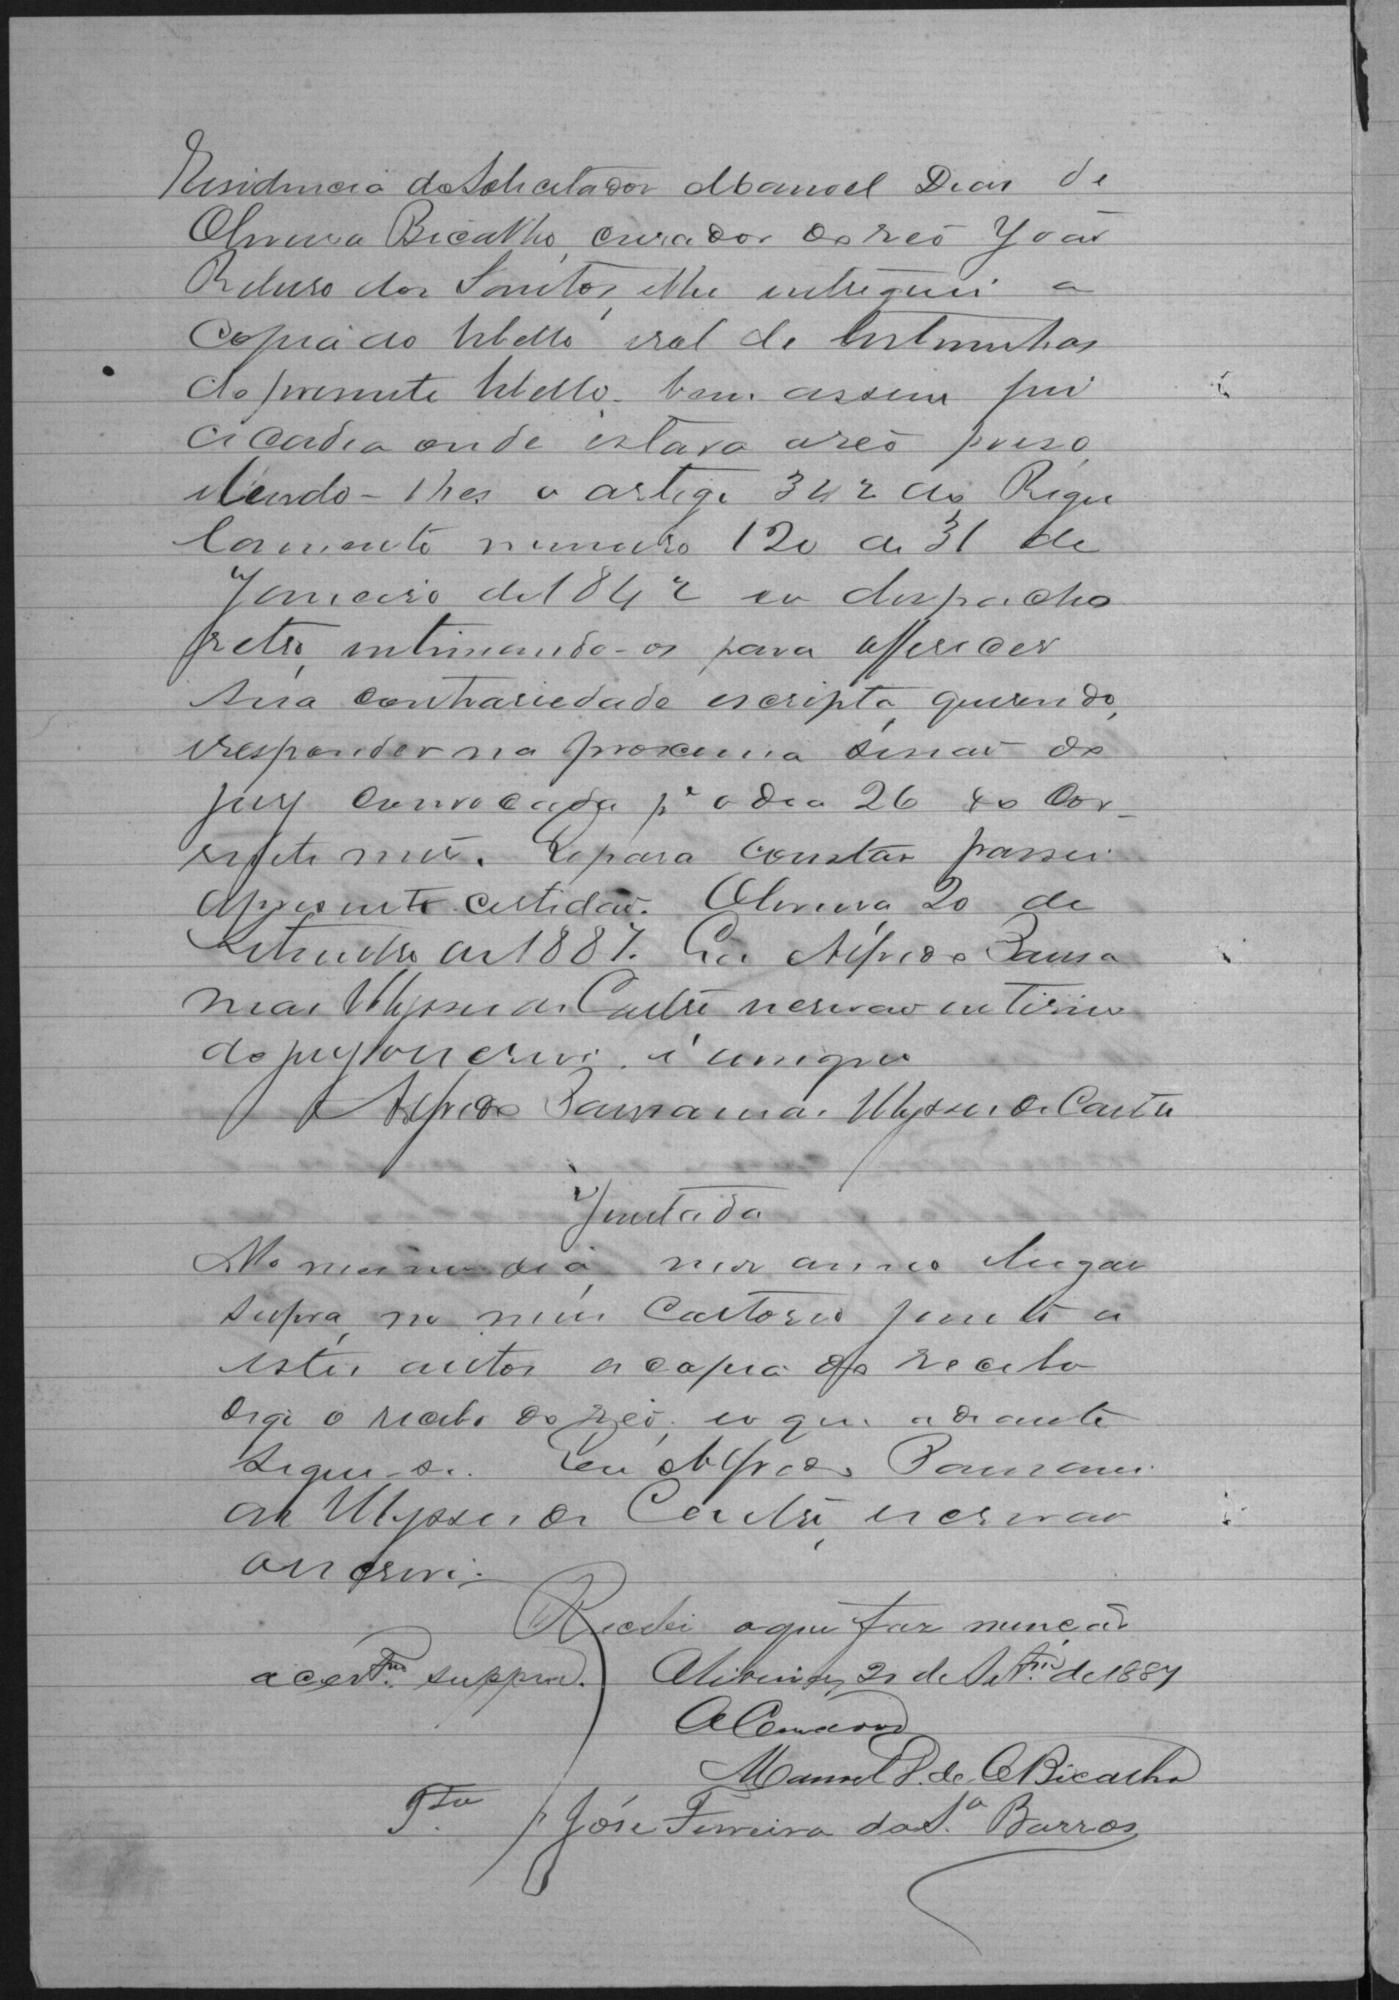 Residencia do Solicitador Manoel Dias de
Oliveira Bicalho, curador do reo João
dos Santos, e lhe entreguei a
copia do libello e rol de testemunhas
do presente libello, bem assim fui
a cadea onde estava o reo preso,
e lendo-lhes o artigo 342 do Regu
lamento numero 120 de 31 de
Janeiro de 1842 e o despacho
retro, intimando-os para offerecer
sua contrariedade escripta, querendo,
e responder na proxima sessão do
jury convocada pª o dia 26 do cor-
rente mês. E para constar passei
a presente certidão. Oliveira 20 de
Setembro de 1887. Eu Alfredo Pausa
nias Ulysses de Castro escrivão interino
do jury o escrevi e assigno
Alfredo Pausanias Ulysses de Castro
Juntada
No mesmo dia, mez anno e lugar
supra, no meu Cartorio junto a
estes autos a copia do recibo
digo o recibo do reo, e o que adiante
segue-se. Eu Alfredo Pausani
as Ulysses de Castro, escrivão
o escrevi.
Recebi o que faz menção
a cert.am suppra. Oliveira, 20 de Set.bro de 1887
O Curador
Manoel D. de O Bicalho
T.ta José Ferreira da S.ª Barros